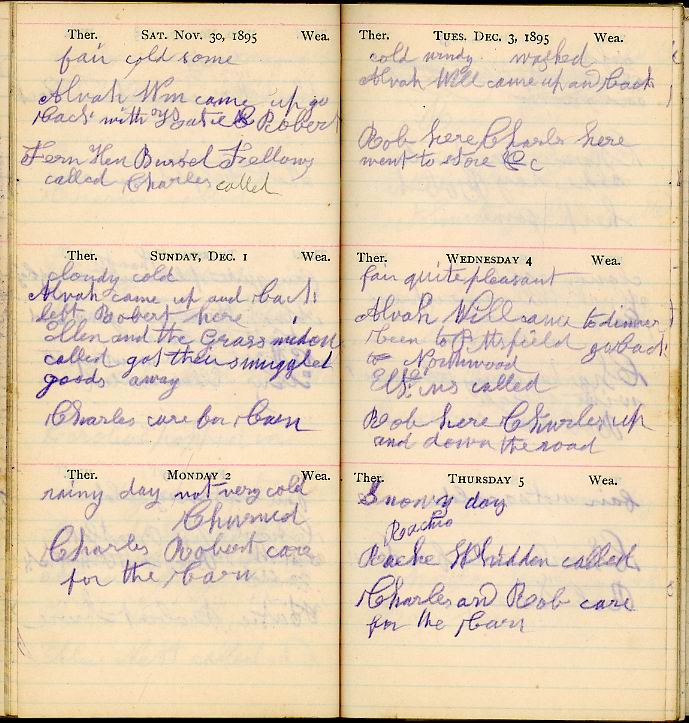 Ther. SAT. NOV. 30, 1895 Wea.
fair cold some
Alvah Wm came up go
back with Robert
Fern Hen Bussel Fellows
called Charles called
Ther. SUNDAY, DEC. 1 Wea.
cloudy cold
Alvah came up and back
left Robert here
Ellen and the Grass widow
called got their smuggled
goods away
Charles care for Barn
Ther. MONDAY 2 Wea.
rainy day not very cold
Churned
Charles Robert care
for the Barn
Ther. TUES. DEC. 3, 1895 Wea.
cold windy washed
Alvah Will came up and back
Rob here Charles here
went to store &c
Ther. WEDNESDAY 4 Wea.
fair quite pleasant
Alvah Will came to dinner
been to Pittsfield go back
to Normwood
called
Rob here Charles up
and down the road
Ther. THURSDAY 5 Wea.
Snowy day
Whidden called
Charles and Rob care
for the Barn